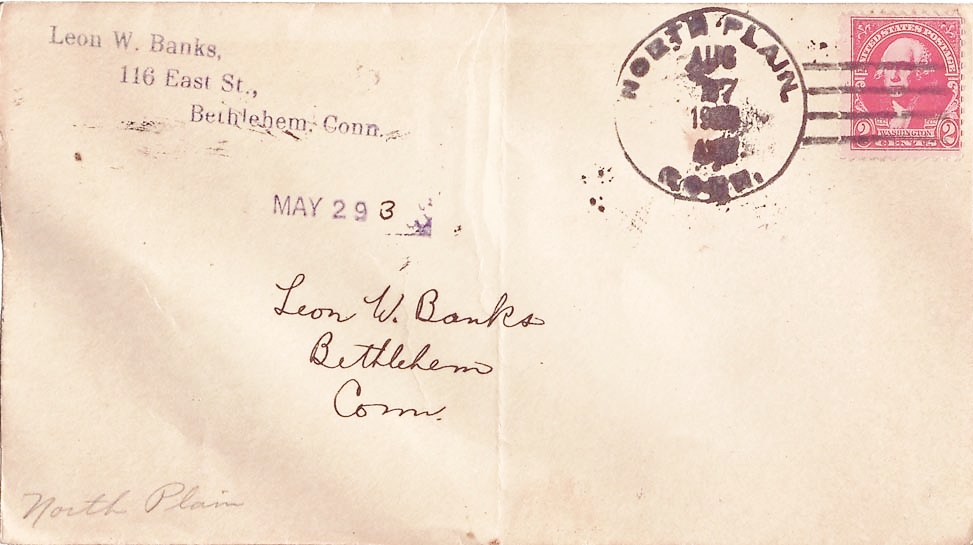 Leon W. Banks,
116 East St.,
Bethlehem, Conn.
NORTH PLAIN
AUG
CONN.
UNITED STATES POSTAGE
2 WASHINGTON 2
MAY 29 3
Leon W. Banks
Bethlehem
Conn.
North Plain